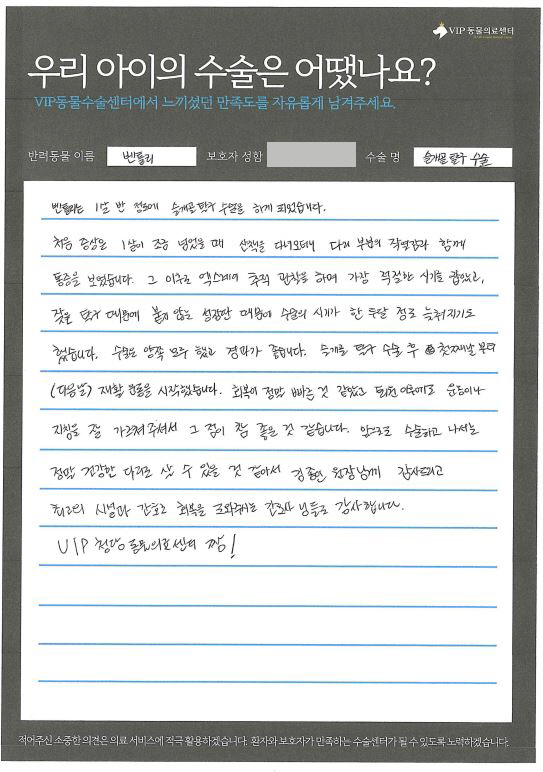 VIP 동물의료센터
우리 아이의 수술은 어땠나요?
VIP동물수술센터에서 느끼셨던 만족도를 자유롭게 남겨주세요.
반려동물 이름 벤틀리 보호자 성함 수술 명 슬개골 탈구 수술
벤틀리는 1살 반 정도에 슬개골 탈구 수술을 하게 되었습니다.
처음 증상은 1살이 조금 넘었을 때 산책을 다녀오더니 다리 부분의 떨림과 함께
통증을 보였습니다. 그 이후로 엑스레이 추적 관찰을 하며 가장 적절한 시기를 잡았고,
잦은 탈구 때문에 붙지 않는 성장판 때문에 수술의 시기가 한 두달 정도 늦춰지기도
했습니다. 수술은 양쪽 모두 했고 경과가 좋습니다. 슬개골 탈구 수술 후 첫째날 부터
(다음날) 재활 운동을 시작했습니다. 회복이 정말 빠른 것 같았고 퇴원 이후에도 운동이나
지침을 잘 가르쳐주셔서 그 점이 참 좋은 것 같습니다. 앞으로도 수술하고 나서는
정말 건강한 다리로 살 수 있을 것 같아서 김종인 원장님께 감사드리고
최고의 시설과 간호로 회복을 도와주는 간호사 님들도 감사합니다.
VIP 청담동물의료센터 짱!
적어주신 소중한 의견은 의료 서비스에 적극 활용하겠습니다. 환자와 보호자가 만족하는 수술센터가 될 수 있도록 노력하겠습니다.